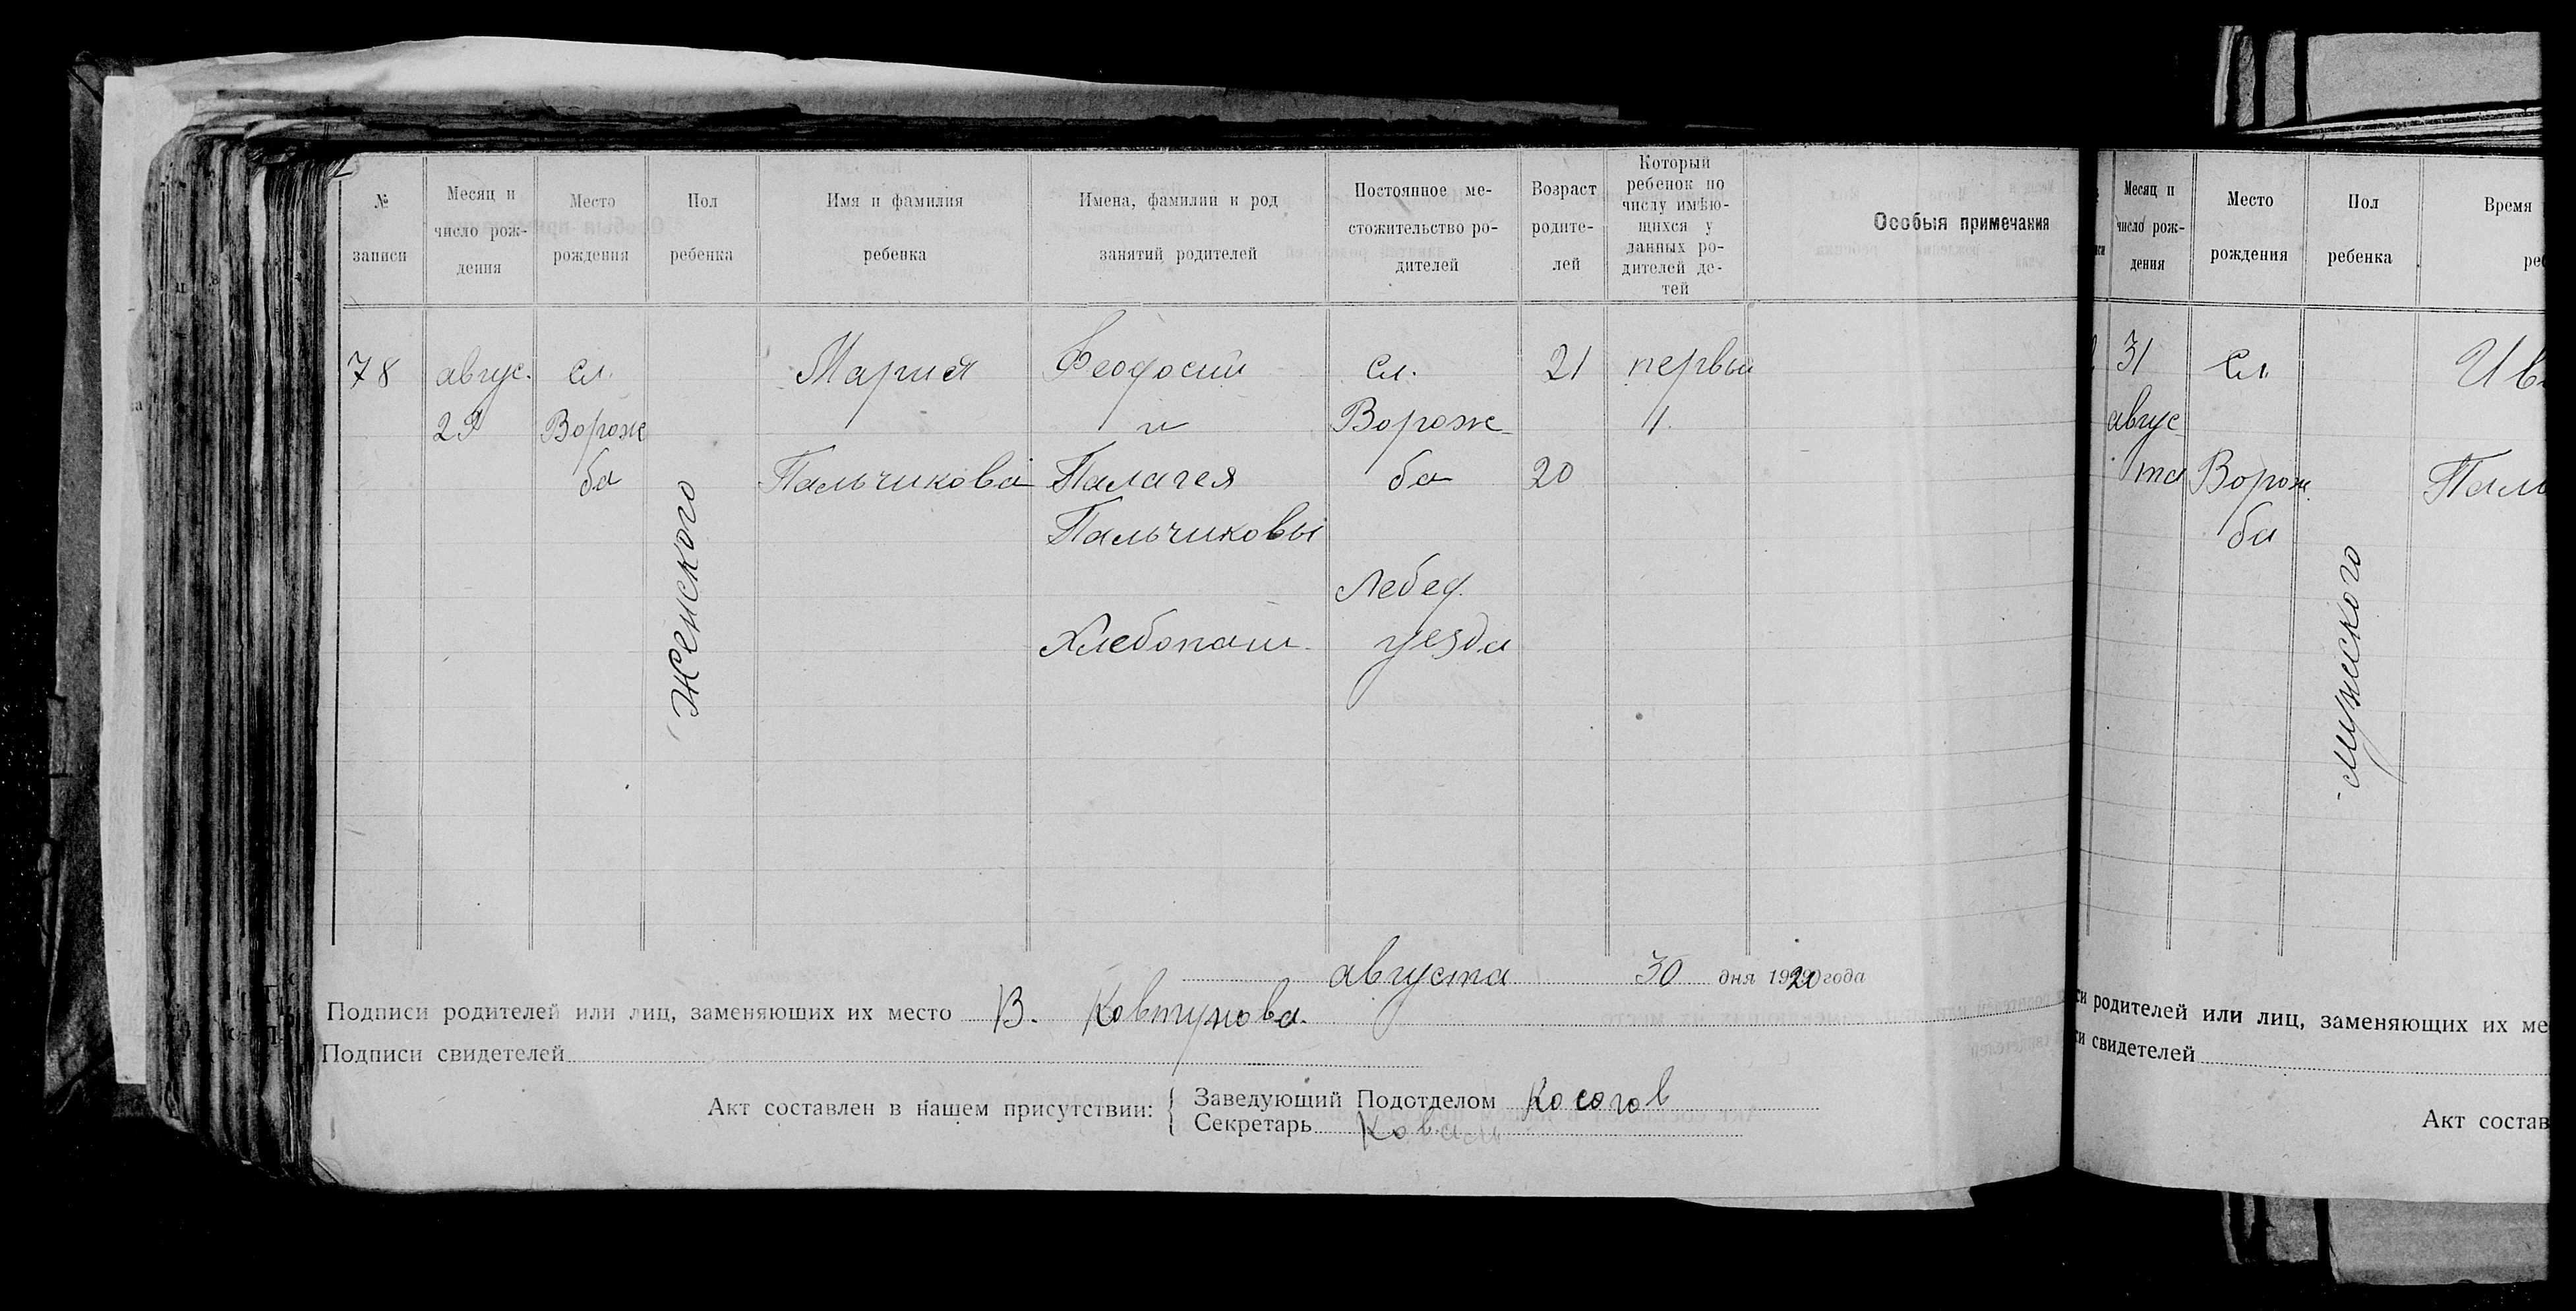 № записи
Месяц и число рождения
Место рождения
Пол ребенка
Имя и фамилия ребенка
Имена, фамилии и род занятий родителей
Постоянное местожительство родителей
Возраст родителей
Который ребенок по числу имѣющихся у данных родителей детей
Особыя примечания
78
авгус.
29
сл.
Ворож
ба
Женского
Мария
Пальчикова
Феодосий
и
Палагея
Пальчиковы
Хлебопаш.
Сл.
Ворож-
ба
Лебед.
уезда
21
20
первый
1.
августа 30 дня 1920 года
Подписи родителей или лиц, заменяюших их место В. Ковтунова.
Подписи свидетелей
Акт составлен в нашем присутствии:
Заведующий Подотделом Косогов
Секретарь
Месяц и
число рож-
дения
Место
рождения
Пол
ребенка
Время
31
авгус
та
Сл.
Ворож
ба
мужского
Ив
Паль
родителей или лиц, заменяющих их ме
свидетелей
Акт состав